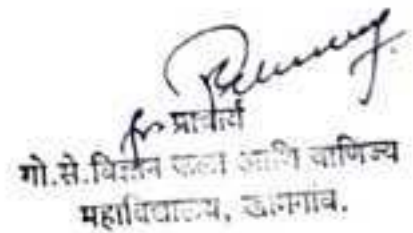 for प्राचार्य
गो.से.विज्ञान कला आणि वाणिज्य
महाविद्यालय, खामगांव.